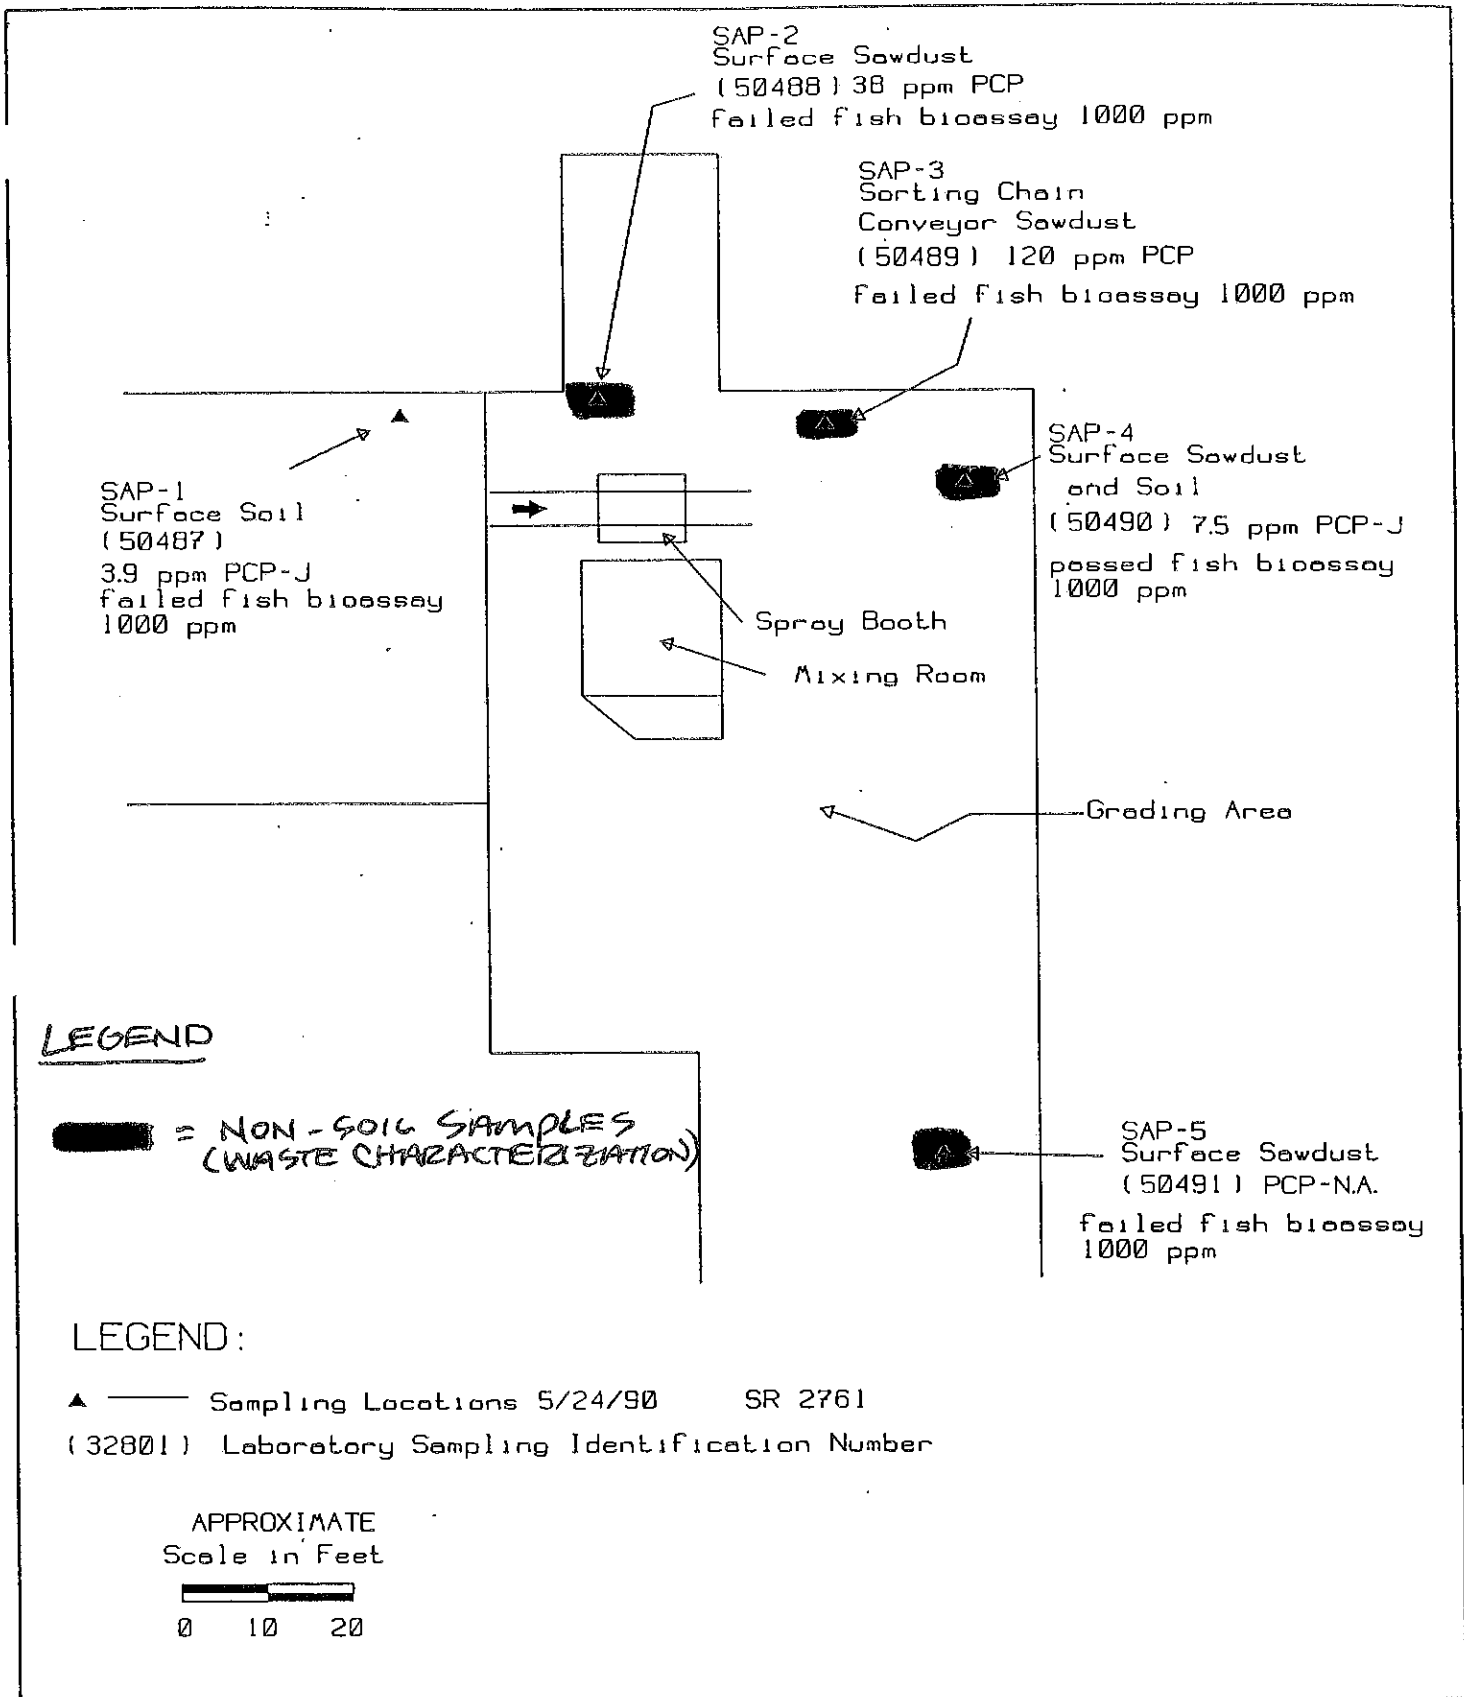 SAP-2
Surface Sawdust
(50488) 38 ppm PCP
failed fish bioassay 1000 ppm
SAP-3
Sorting Chain
Conveyor Sawdust
(50489) 120 ppm PCP
failed fish bioassay 1000 ppm
SAP-4
Surface Sawdust
and Soil
(50490) 7.5 ppm PCP-J
passed fish bioassay
1000 ppm
SAP-1
Surface Soil
(50487)
3.9 ppm PCP-J
failed fish bioassay
1000 ppm
Spray Booth
Mixing Room
Grading Area
LEGEND
= NON-SOIL SAMPLES
(WASTE CHARACTERIZATION)
SAP-5
Surface Sawdust
(50491) PCP-N.A.
failed fish bioassay
1000 ppm
LEGEND:
Sampling Locations 5/24/90 SR 2761
(32801) Laboratory Sampling Identification Number
APPROXIMATE
Scale in Feet
0 10 20